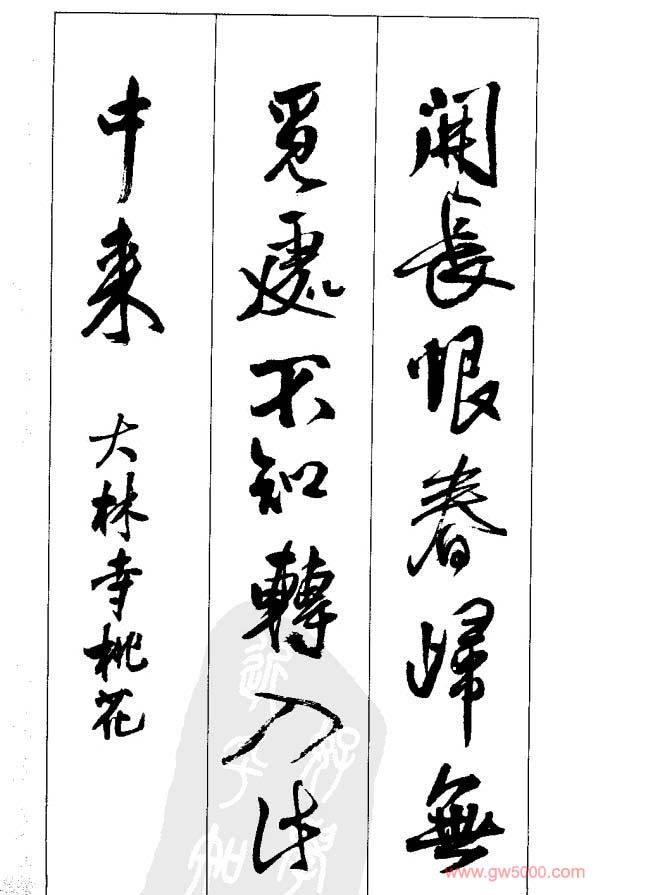 開長恨春歸無
覓處不知轉入此
中来
大林寺桃花
www.gw5000.com